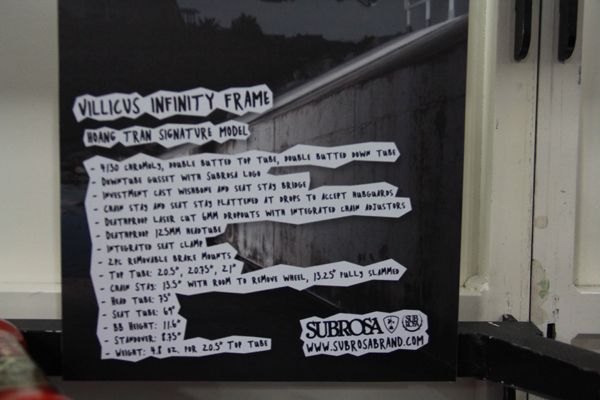 VILLICUS INFINITY FRAME
HOANG TRAN SIGNATURE MODEL
- 4130 CHROMOLY, DOUBLE BUTTED TOP TUBE, DOUBLE BUTTED DOWN TUBE
- DOWNTUBE GUSSET WITH SUBROSA LOGO
- INVESTMENT CAST WISHBONE AND SEAT STAY BRIDGE
- CHAIN STAY AND SEAT STAY FLATTENED AT DROPS TO ACCEPT HUBGUARDS
- DEATHPROOF LASER CUT 6MM DROPOUTS WITH INTEGRATED CHAIN ADJUSTORS
- DEATHPROOF 125MM HEADTUBE
- INTEGRATED SEAT CLAMP
- 2PC REMOVABLE BRAKE MOUNTS
- TOP TUBE: 20.5", 20.75", 21"
- CHAIN STAY: 13.5" WITH ROOM TO REMOVE WHEEL, 13.25" FULLY SLAMMED
- HEAD TUBE: 75°
- SEAT TUBE: 69°
- BB HEIGHT: 11.6"
- STANDOVER: 8.75"
- WEIGHT: 4.8 OZ. FOR 20.5" TOP TUBE
SUBROSA
SUB
ROSA
WWW.SUBROSABRAND.COM